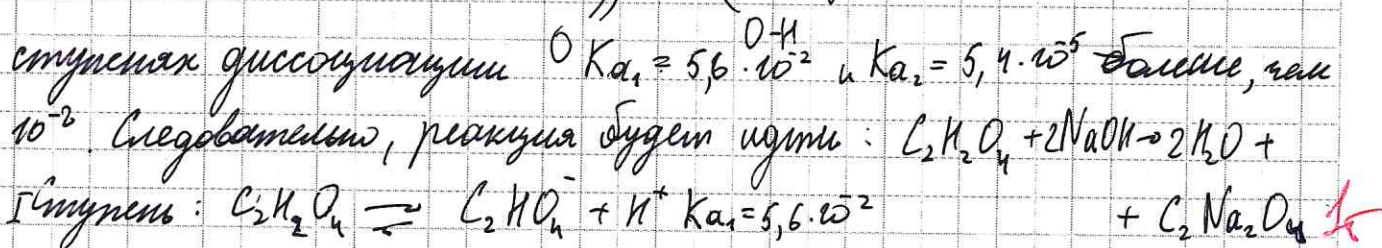 O O-H
ступенях диссоциации Ka₁ = 5,6·10⁻² и Ka₂ = 5,4·10⁻⁵ больше, чем
10⁻⁸. Следовательно, реакция будет идти: C₂H₂O₄ + 2NaOH → 2H₂O +
I ступень: C₂H₂O₄ ⇌ C₂HO₄⁻ + H⁺ Ka₁ = 5,6·10⁻² + C₂Na₂O₄